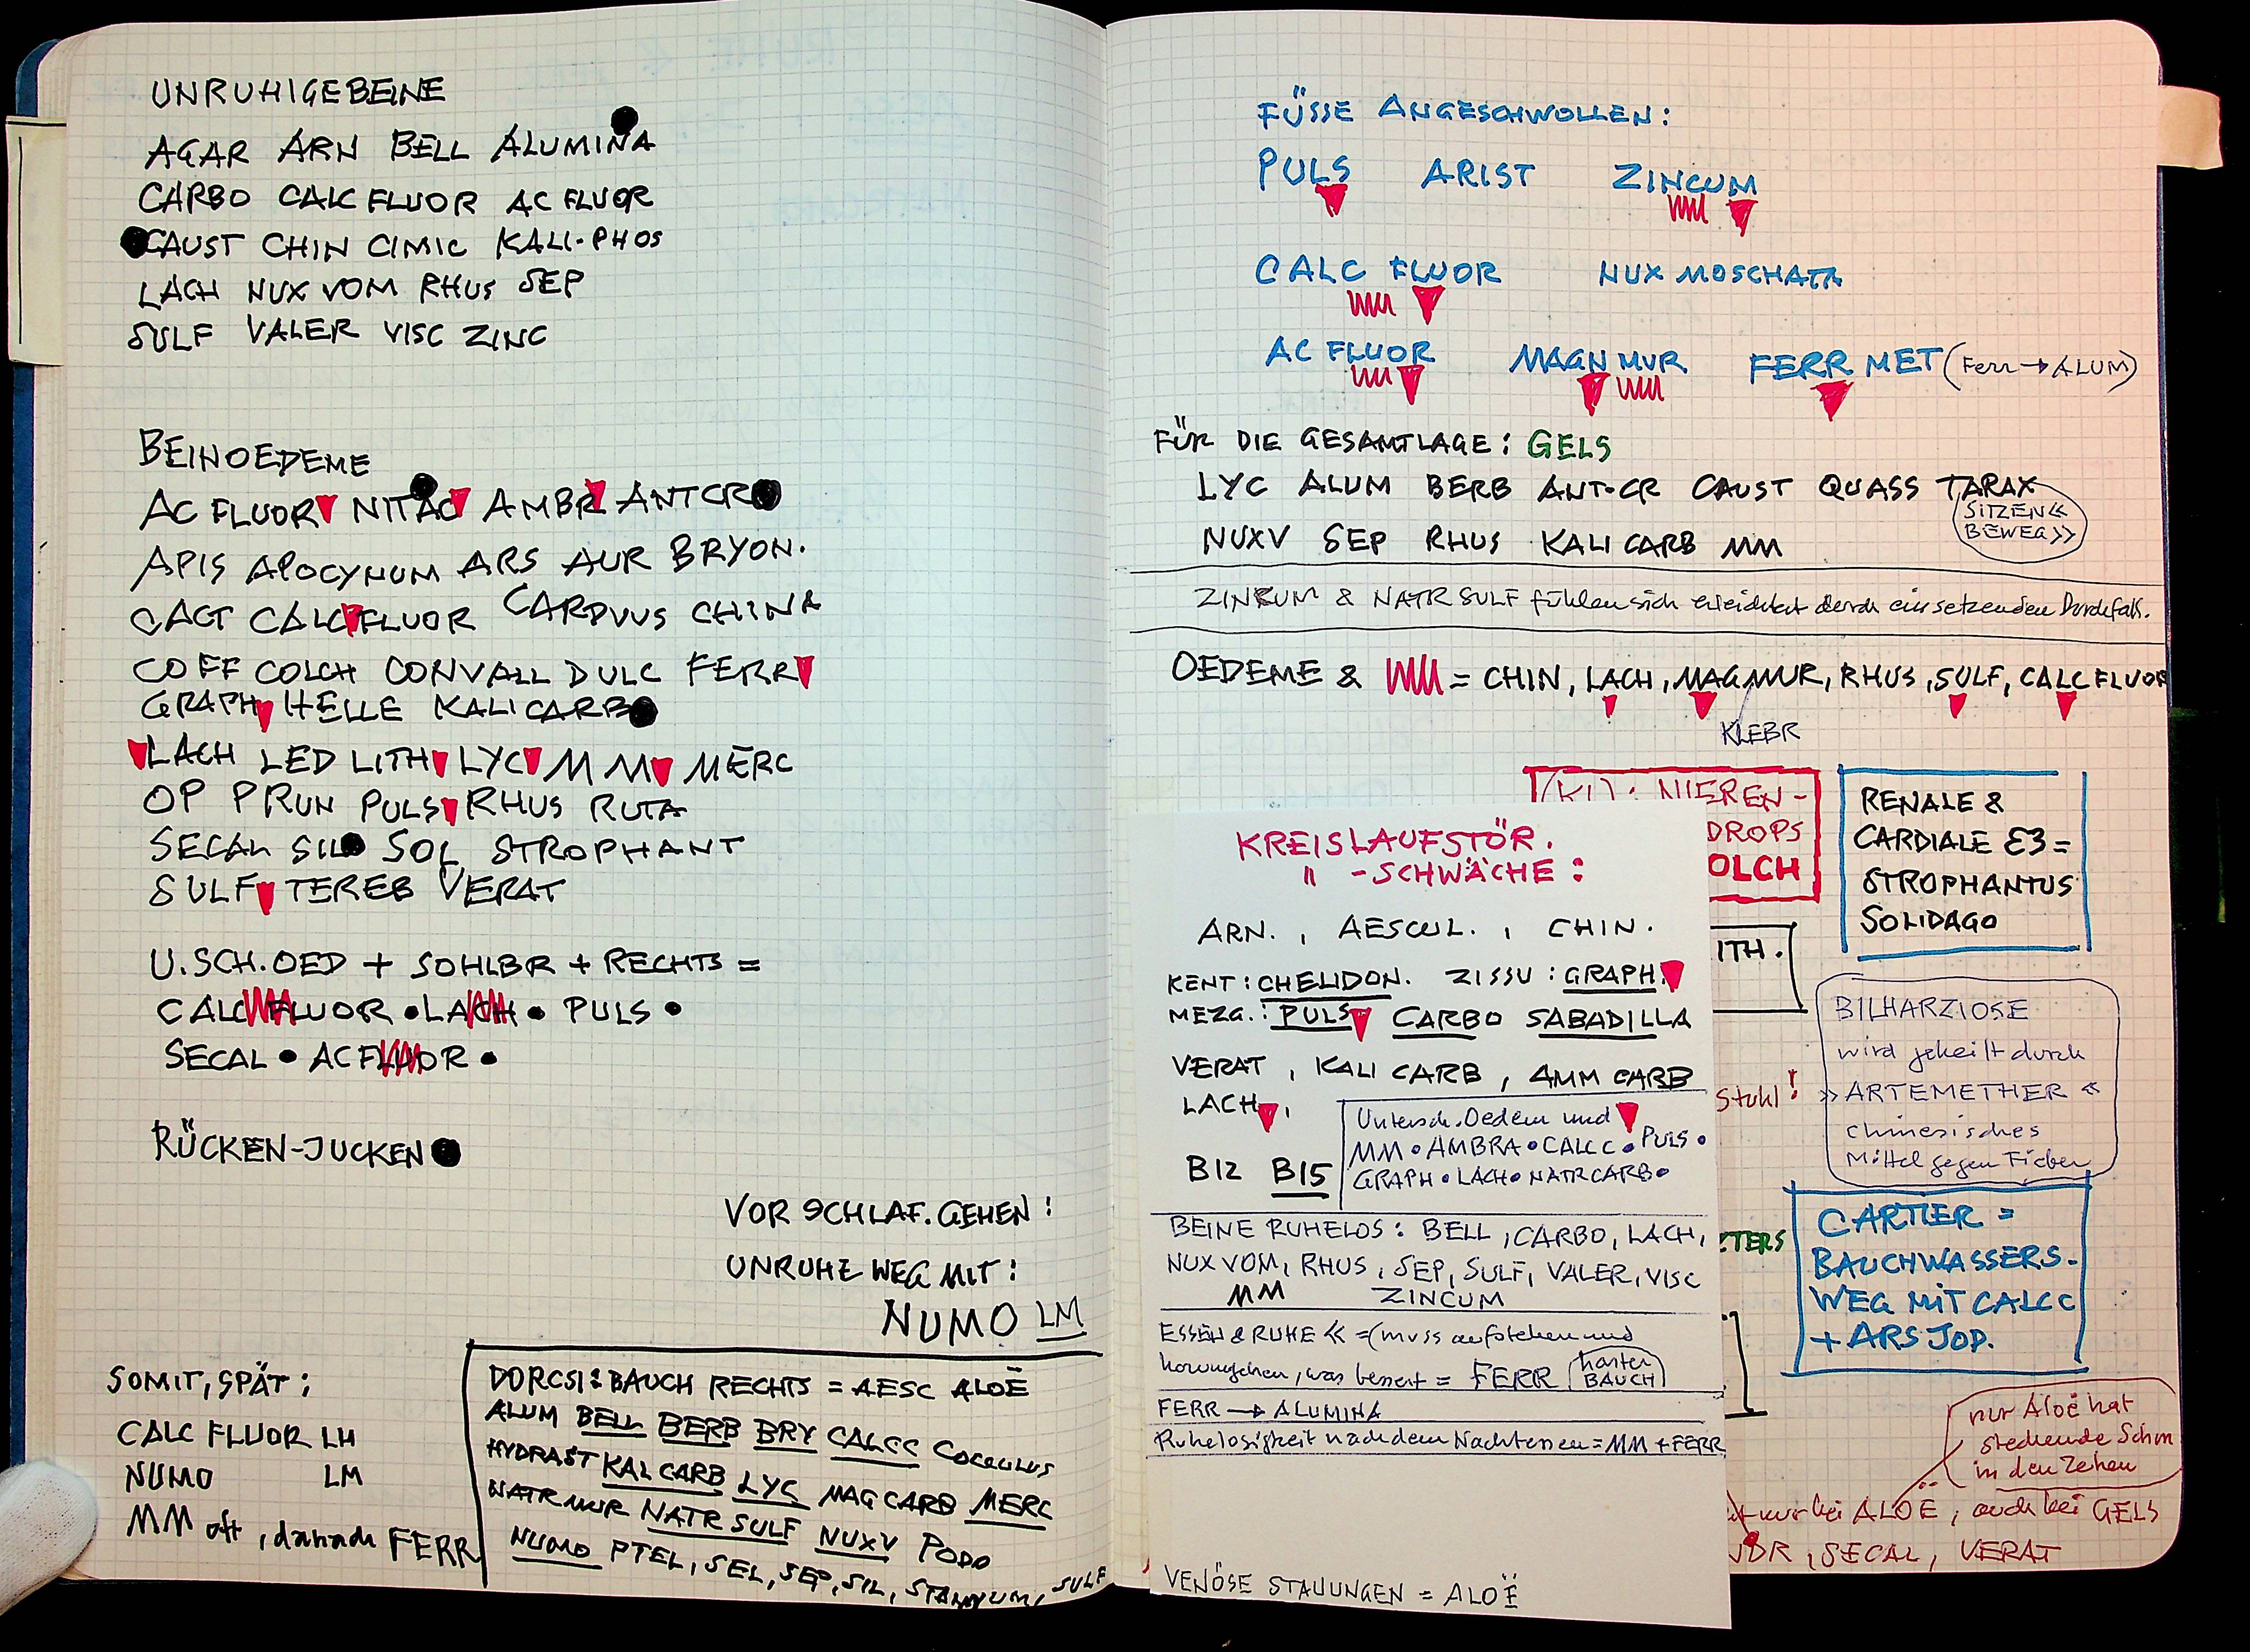 UNRUHIGE BEINE
AGAR ARN BELL ALUMINA
CARBO CALC FLUOR AC FLUOR
CAUST CHIN CIMIC KALI-PHOS
LACH NUX VOM RHUS SEP
SULF VALER VISC ZINC
BEINOEDEME
AC FLUOR NITAC AMBR ANTCR
APIS APOCYNUM ARS AUR BRYON.
CACT CALC FLUOR CARDVUS CHINA
COFF COLCH CONVALL DULC FERR
GRAPH HELLE KALI CARB
LACH LED LITH LYC MM MERC
OP PRUN PULS RHUS RUTA
SECAL SIL SOL STROPHANT
SULF TEREB VERAT
U.SCH.OED + SOHLBR + RECHTS =
CALC FLUOR • LACH • PULS •
SECAL • AC FLUOR •
RÜCKEN-JUCKEN
VOR SCHLAF.GEHEN:
UNRUHE WEG MIT:
NUMO LM
SOMIT, SPÄT:
CALC FLUOR LM
NUMO LM
MM oft, danach FERR
DORCSI: BAUCH RECHTS = AESC ALOË
ALUM BELL BERB BRY CALCC COCCULUS
HYDRAST KAL CARB LYC MAG CARB MERC
NATR MUR NATR SULF NUXV PODO
NUMO PTEL, SEL, SEP, SIL, STANNUM, SULF
FÜSSE ANGESCHWOLLEN:
PULS ARIST ZINCUM
CALC FLUOR NUX MOSCHATA
AC FLUOR MAGN MUR FERR MET (Ferr → ALUM)
FÜR DIE GESAMTLAGE: GELS
LYC ALUM BERB ANT•CR CAUST QUASS TARAX
SITZEN <<
BEWEG >>
NUXV SEP RHUS KALI CARB MM
ZINKUM & NATR SULF fühlen sich erleichtert durch einsetzenden Durchfall.
OEDEME & = CHIN, LACH, MAGMUR, RHUS, SULF, CALC FLUOR
KLEBR
(KI): NIEREN-
DROPS
OLCH
RENALE &
CARDIALE
STROPHANTUS
SOLIDAGO
ITH.
KREISLAUFSTÖR.
" -SCHWÄCHE:
ARN. , AESCUL. , CHIN.
KENT: CHELIDON. ZISSU: GRAPH.
MEZG.: PULS CARBO SABADILLA
VERAT, KALI CARB, AMM CARB
LACH,
B12 B15
Untersch. Oedem und
MM • AMBRA • CALCC • PULS •
GRAPH • LACH • NATR CARB •
BEINE RUHELOS: BELL, CARBO, LACH,
NUX VOM, RHUS, SEP, SULF, VALER, VISC
MM ZINCUM
ESSEN & RUHE << = (muss aufstehen und
herumgehen, was bessert = FERR (harter BAUCH)
FERR → ALUMINA
Ruhelosigkeit nach dem Nachtessen = MM + FERR
VENÖSE STAUUNGEN = ALOË
BILHARZIOSE
wird geheilt durch
>> ARTEMETHER <<
chinesisches
Mittel gegen Fieber
Stuhl!
CARTIER =
BAUCHWASSERS-
WEG MIT CALCC
+ ARS JOD.
nur Aloë hat
stechende Schm
in den Zehen
nur bei ALOË, auch bei GELS
, SECAL, VERAT